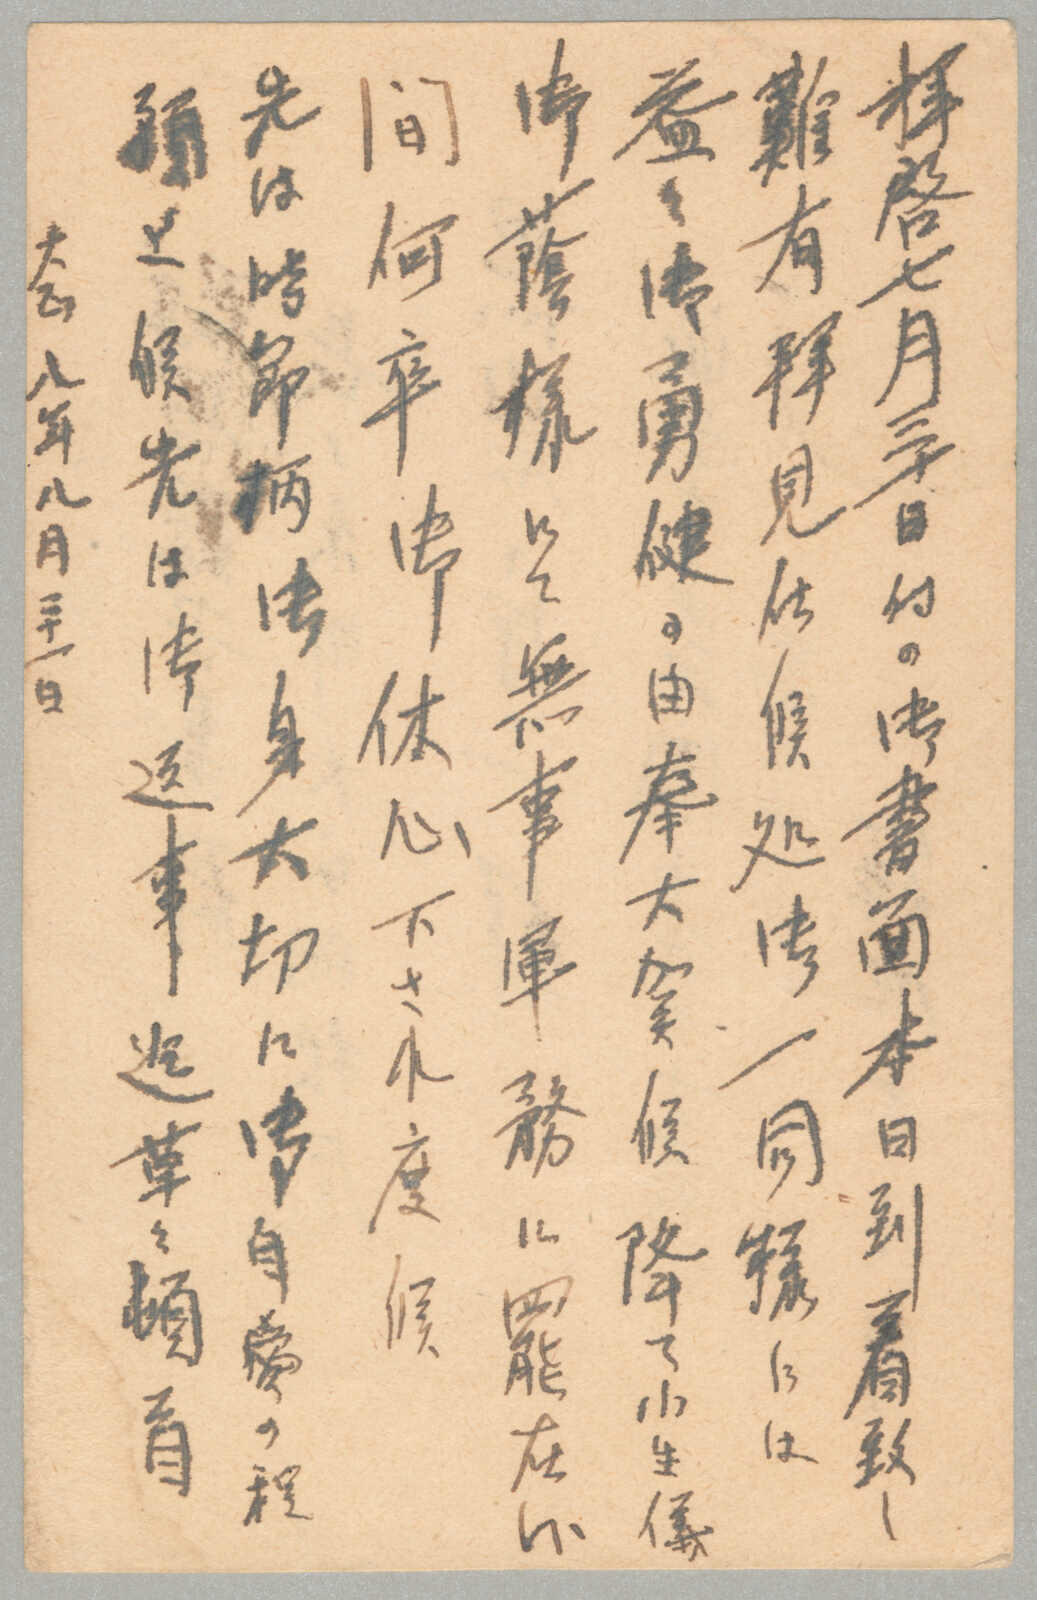 拝啓七月三十日付の御書面本日到着致し
難有拝見仕候処御一同様には
益々御勇健の由奉大賀候降て小生儀
御蔭様にて無事軍務に罷在候
間何卒御休心下され度候
先は時節柄御身大切に御自愛の程
願上候先は御返事迄草々頓首
大正八年八月二十一日